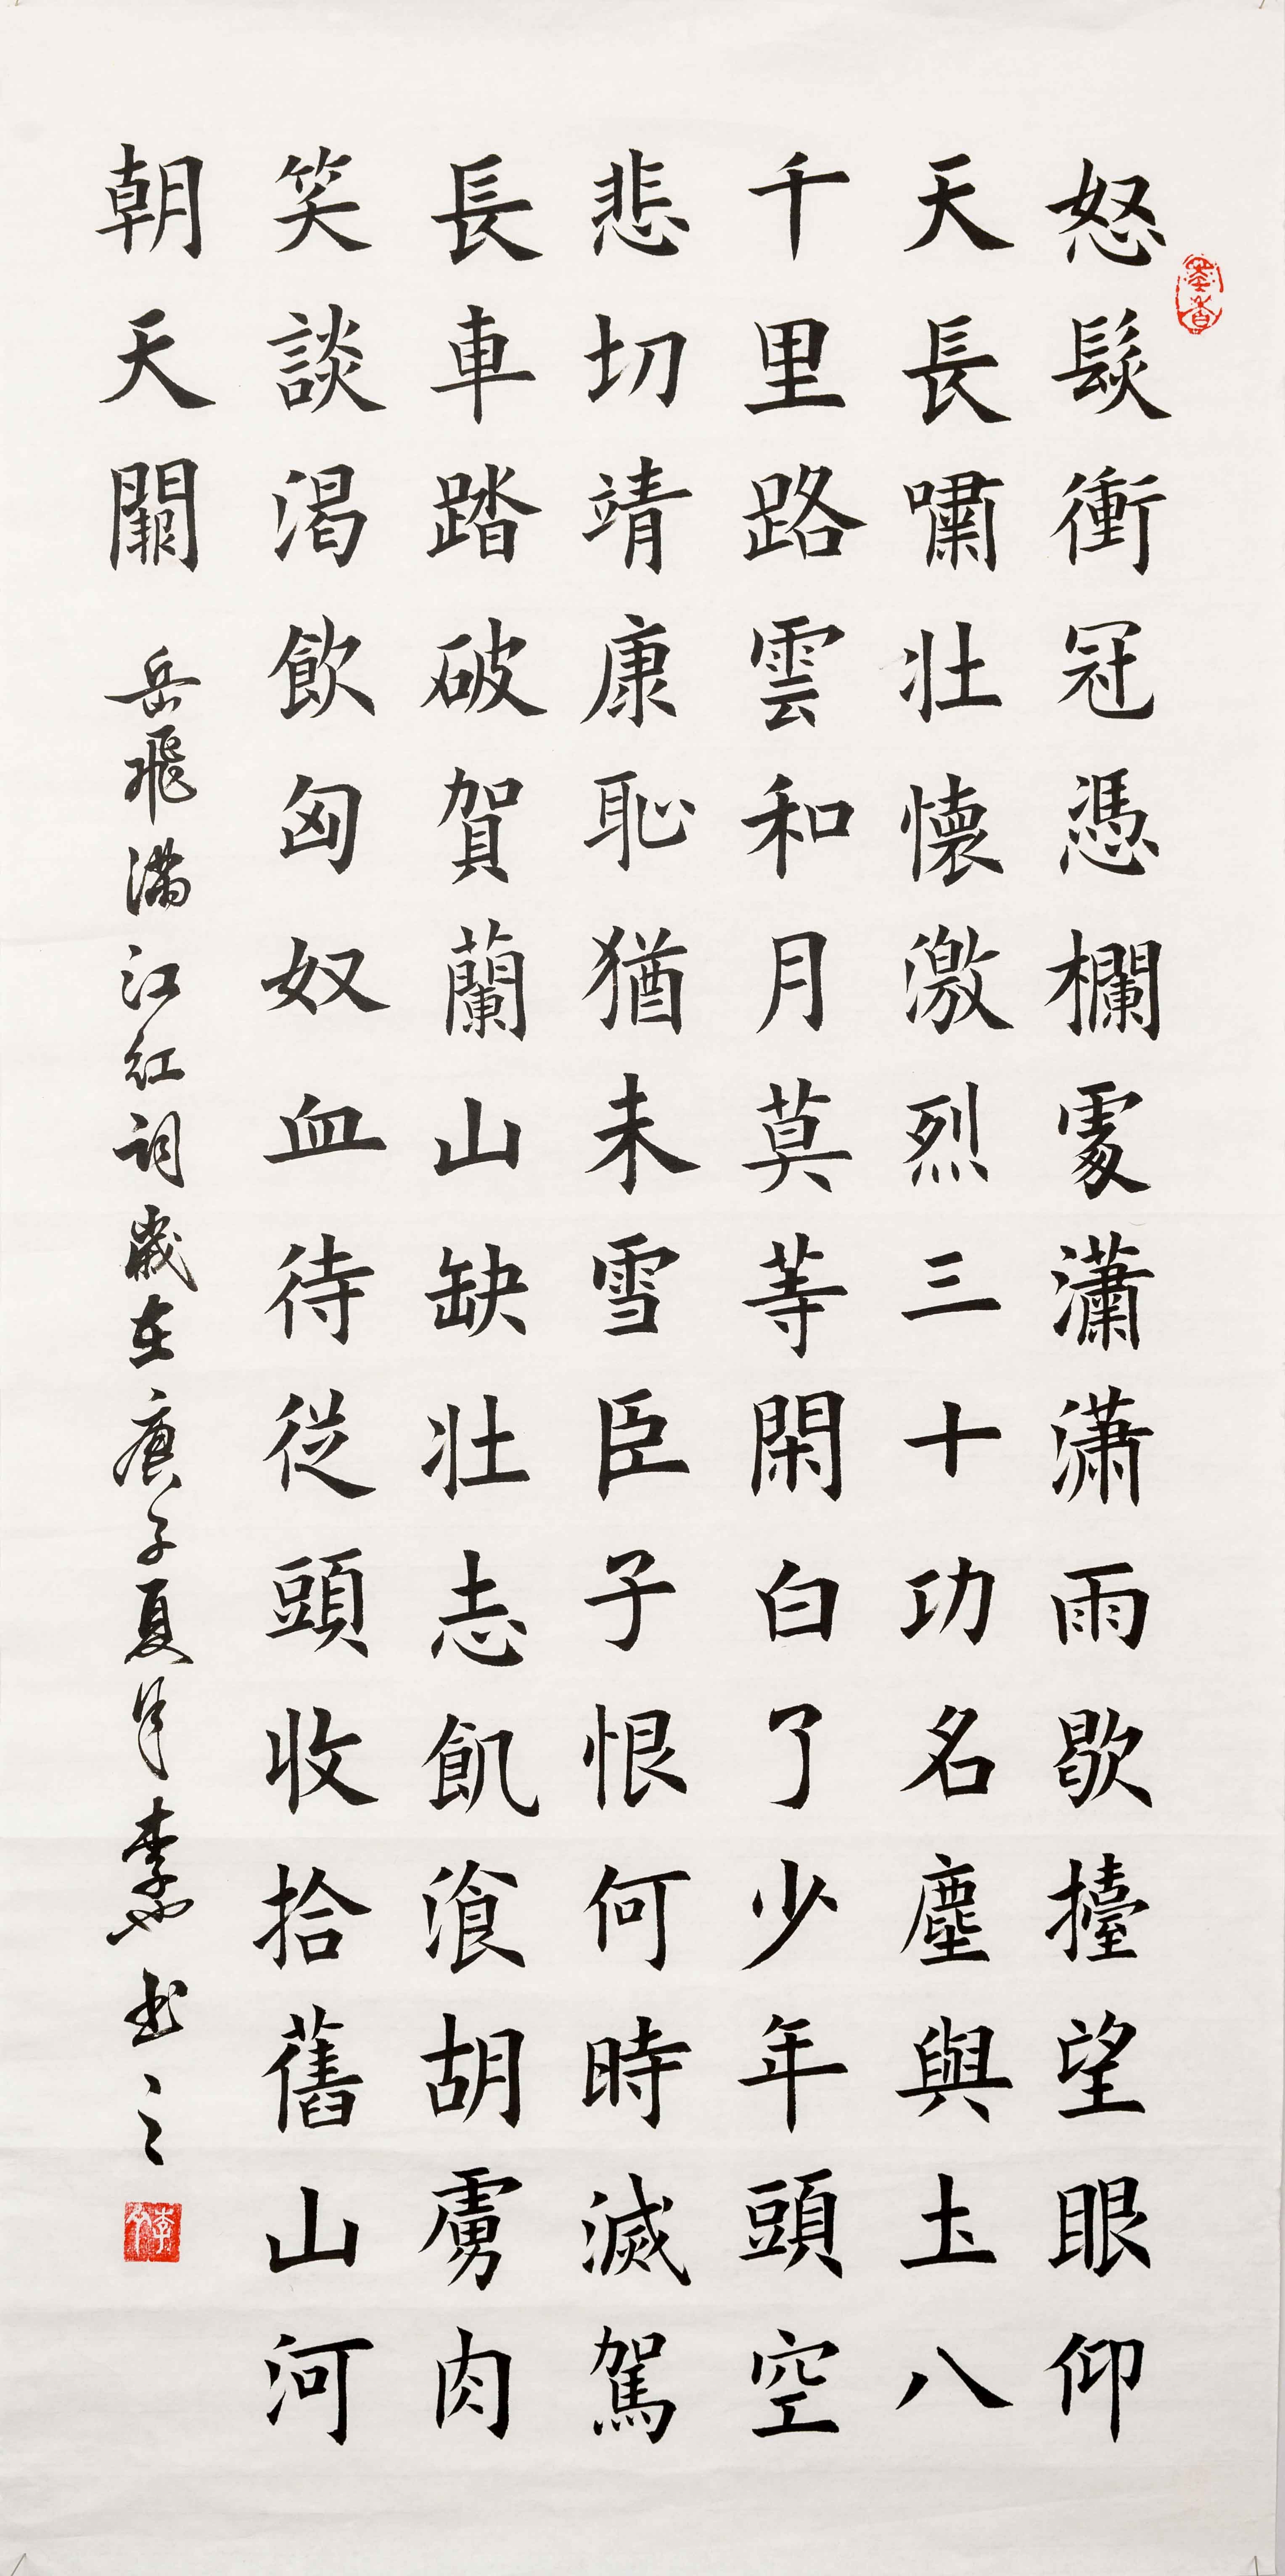 墨香
怒髮衝冠憑欄處瀟潇雨歇擡望眼仰
天長嘯壯懷激烈三十功名塵與土八
千里路雲和月莫等閑白了少年頭空
悲切靖康恥猶未雪臣子恨何時滅駕
長車踏破賀蘭山缺壯志飢飡胡虜肉
笑談渴飲匈奴血待從頭收拾舊山河
朝天闕
岳飛滿江紅詞歲在庚子夏月李書之